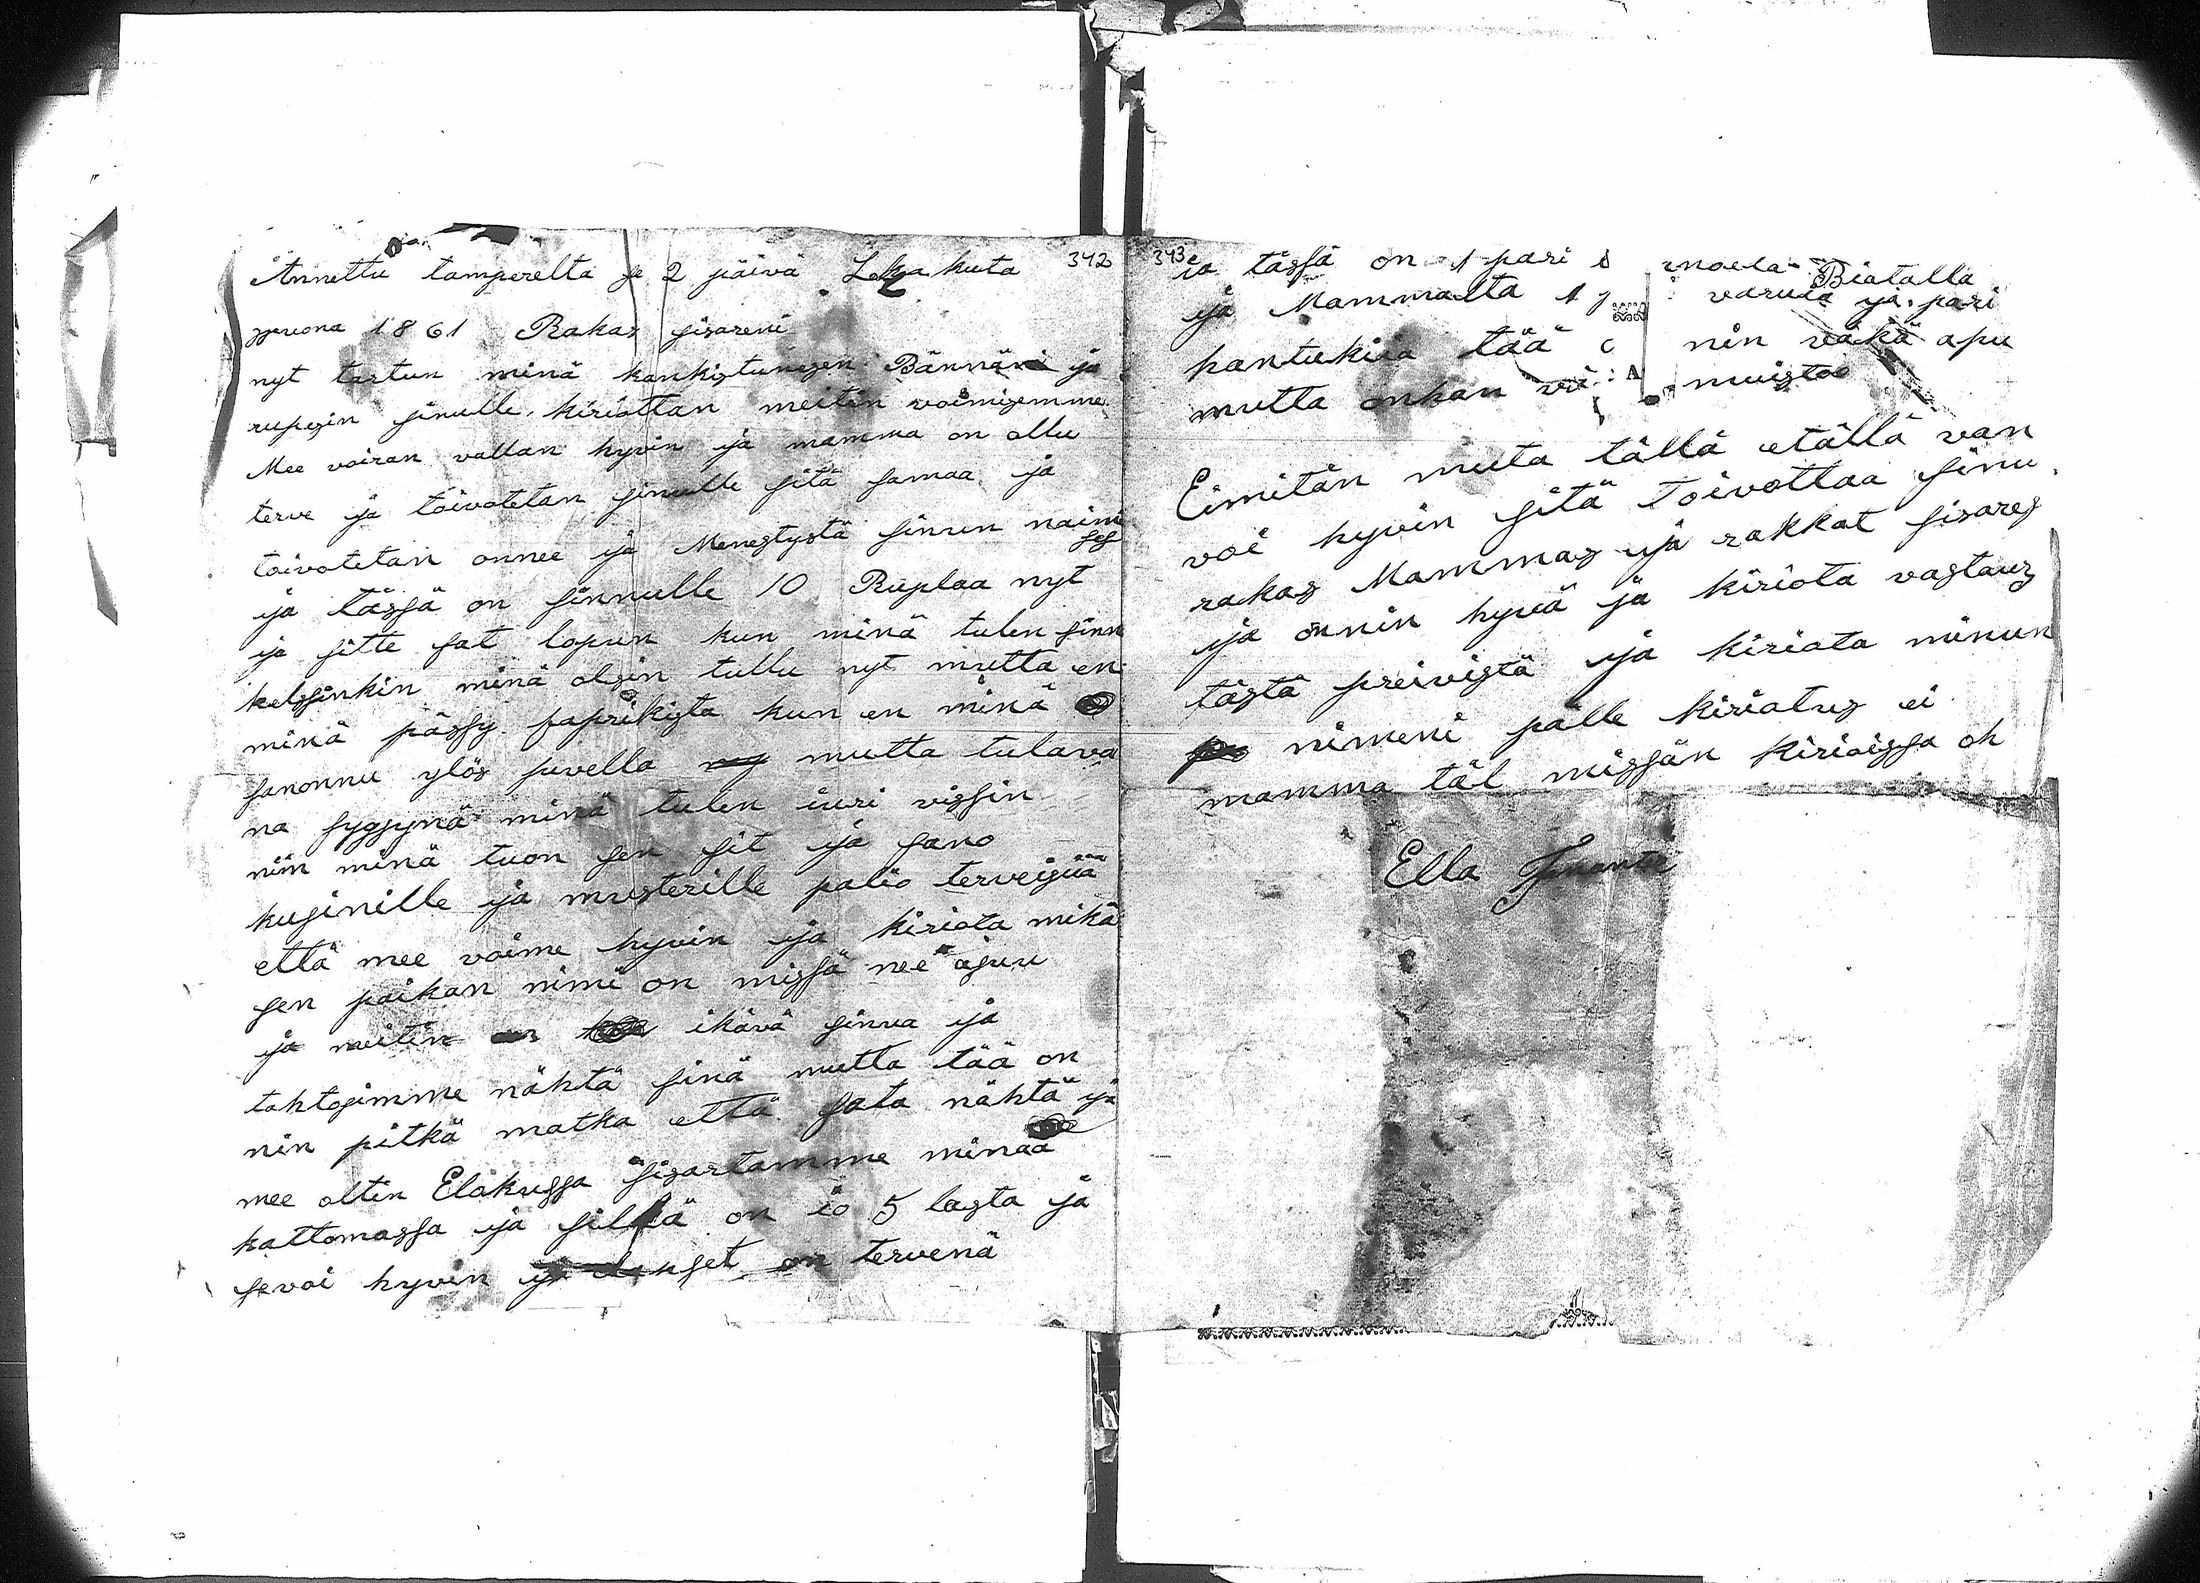 342
Annettu tamperelta se 2 päivä Lokakuta
wuona 1861 Rakas sisareni
nyt tartun minä kankistunesen Bännäni ja
rupesin sinulle kiriattan meitin voimisemme
Mee voiran vallan hyvin ja mamma on ollu
terve ja toivotetan sinulle sitä samaa ja
toivotetan onnee ja Menestystä sinun naimi
ses
ja tässä on sinnulle 10 Ruplaa nyt
ja sitte sat lopun kun minä tulen sinn
helssinkin minä olsin tullu nyt mutta en
minä pässy faprikista kun en minä
sanonnu ylös suvella mutta tulava
na sygsynä minä tulen iuri vissin
niin minä tuon sen sit ja sano
kusinille ja musterille palio terveisiä
että mee voime hyvin ja kiriota mikä
sen paikan nimi on missä nee asuu
ja meitin ikävä sinua ja
tahtosimme nähtä sinä mutta tää on
nin pitkä matka että sata nähtä ja
mee oltin Elokussa sisartamme minaa
kattomassa ja sillä on io 5 lasta ja
se voi hyvin ja on tervenä
343
ja tässä on 1 pari Biatalla
ja Mammalta 1 varuia ja pari
hantukiia tää nin väkä apu
mutta onkan muistoo
Eimitän muta tällä etällä van
voi hyvin sitä Toivottaa sinu
rakas Mammas ja rakkat sisares
ja onnin hyvä ja kiriota vastaus
tästä preivistä ja kiriata minun
nimeni pälle kiriatus ei
mamma täl missän kiriaissa oh
Ella